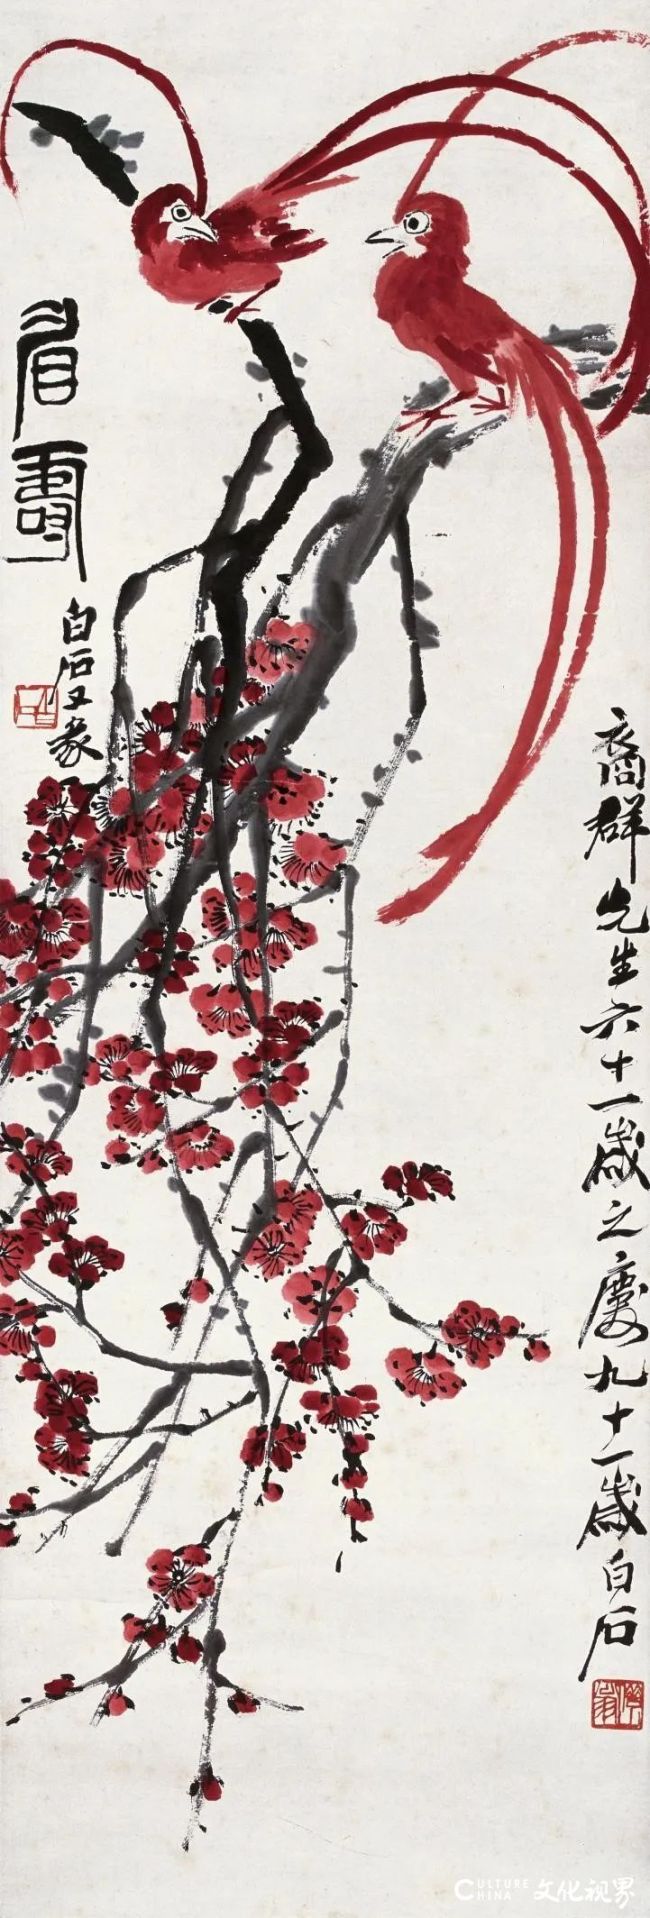 眉壽
白石又篆
裔群先生六十一歲之慶九十一歲白石
CULTURE CHINA 文化视界